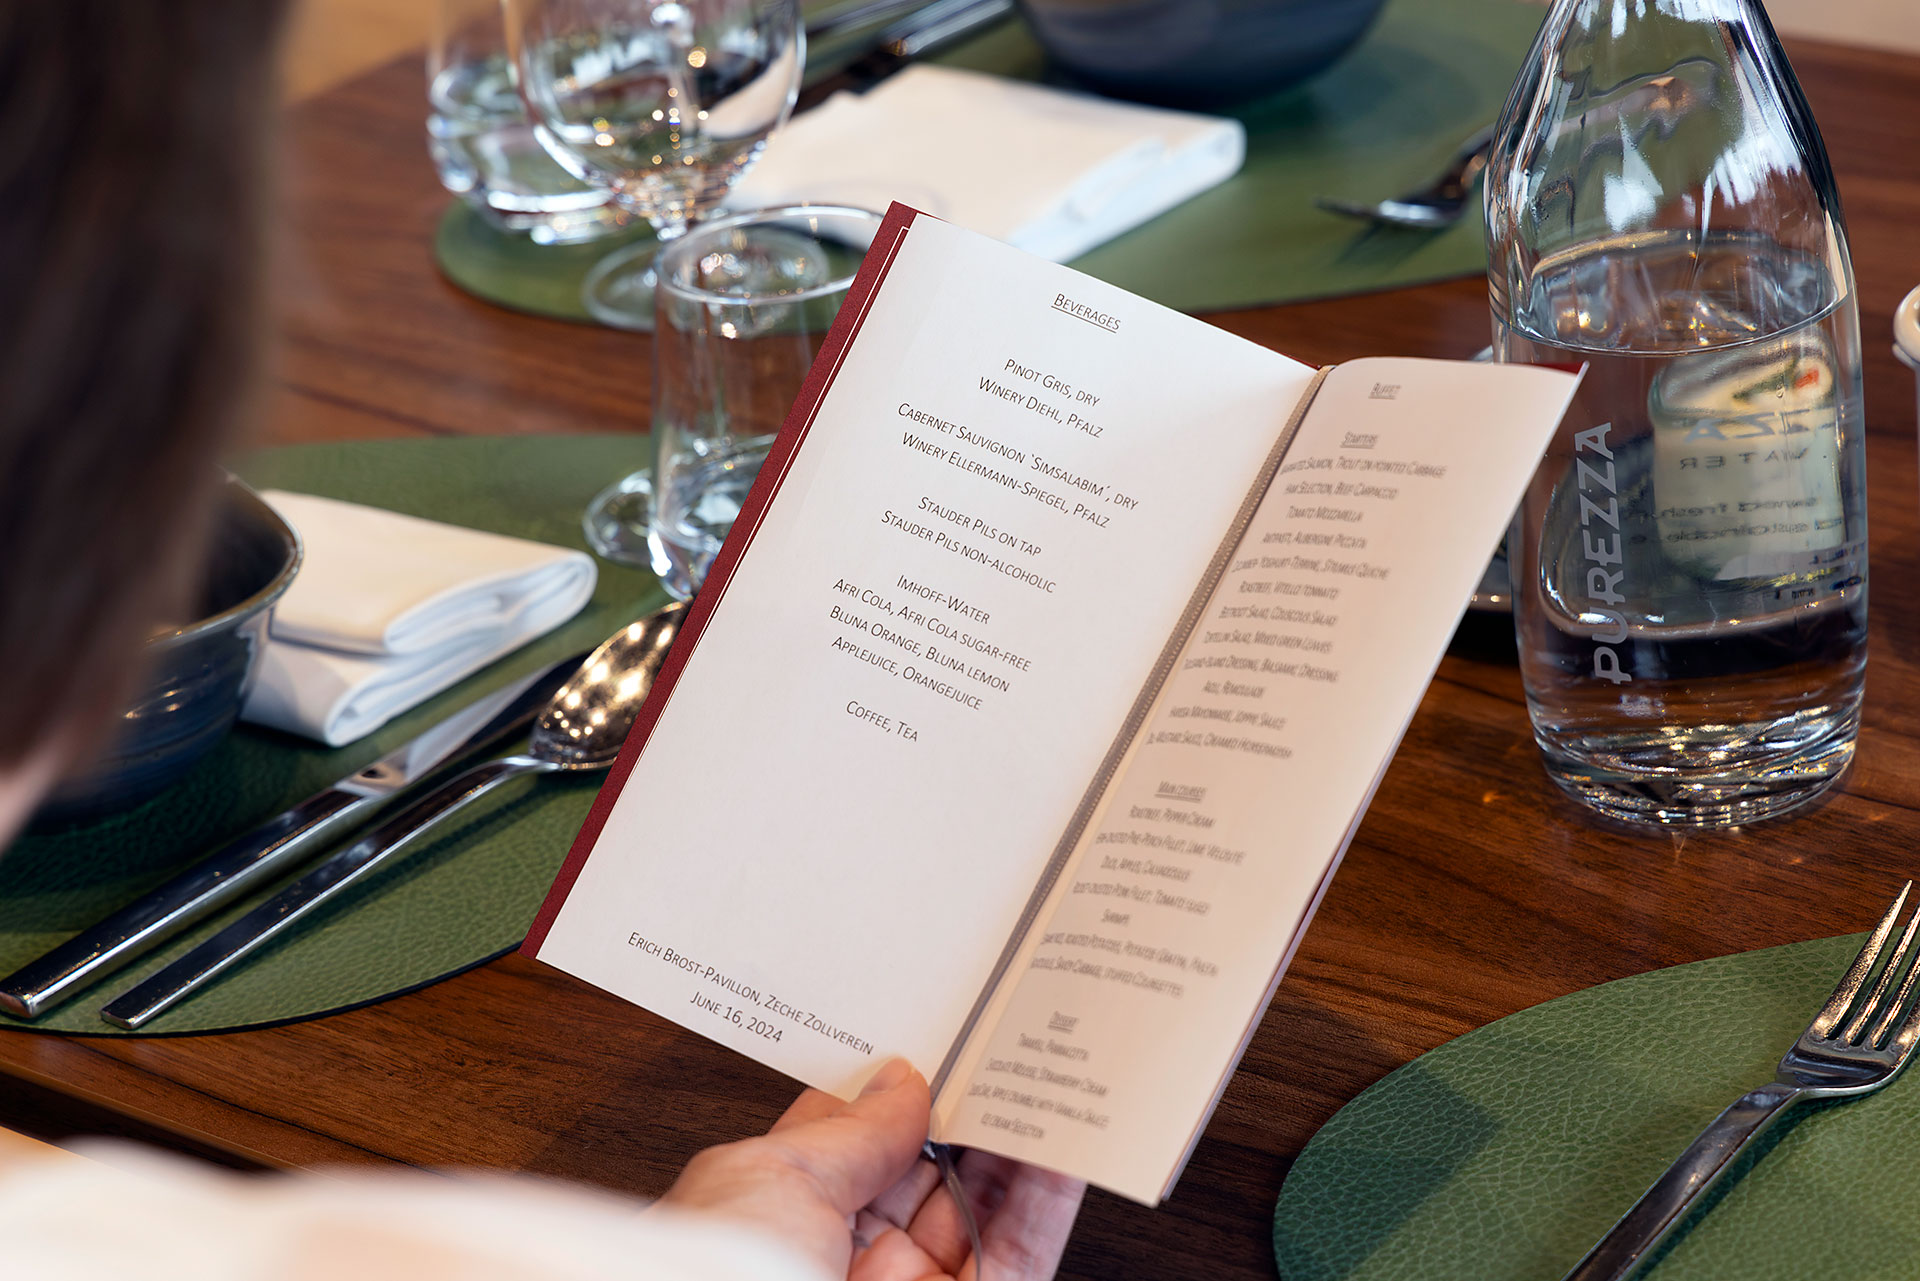 Beverages
Pinot Gris, dry
Winery Diehl, Pfalz
Cabernet Sauvignon `Simsalabim´, dry
Winery Ellermann-Spiegel, Pfalz
Stauder Pils on tap
Stauder Pils non-alcoholic
Imhoff-Water
Afri Cola, Afri Cola sugar-free
Bluna Orange, Bluna lemon
Applejuice, Orangejuice
Coffee, Tea
Erich Brost-Pavillon, Zeche Zollverein
June 16, 2024
Buffet
Starters
Salmon, Trout on pointed Cabbage
Ham Selection, Beef Carpaccio
Tomato Mozzarella
Antipasti, Aubergine Piccata
Roastbeef, Vitello tonnato
Beetroot Salad, Couscous Salad
Salad, Mixed green Leaves
Dressing, Balsamic Dressing
Aioli, Remoulade
Mayonnaise, Joppie Sauce
Mustard Sauce, Creamed Horseradish
Main courses
Roastbeef, Pepper Cream
Fillet, Lime Velouté
Pork Fillet, Tomato sugo
Shrimps
roasted Potatoes, Potatoe Gratin, Pasta
Cabbage, stuffed Courgettes
Dessert
Tiramisu, Pannacotta
Mousse, Strawberry Cream
Apple crumble with Vanilla Sauce
Ice cream Selection
PUREZZA